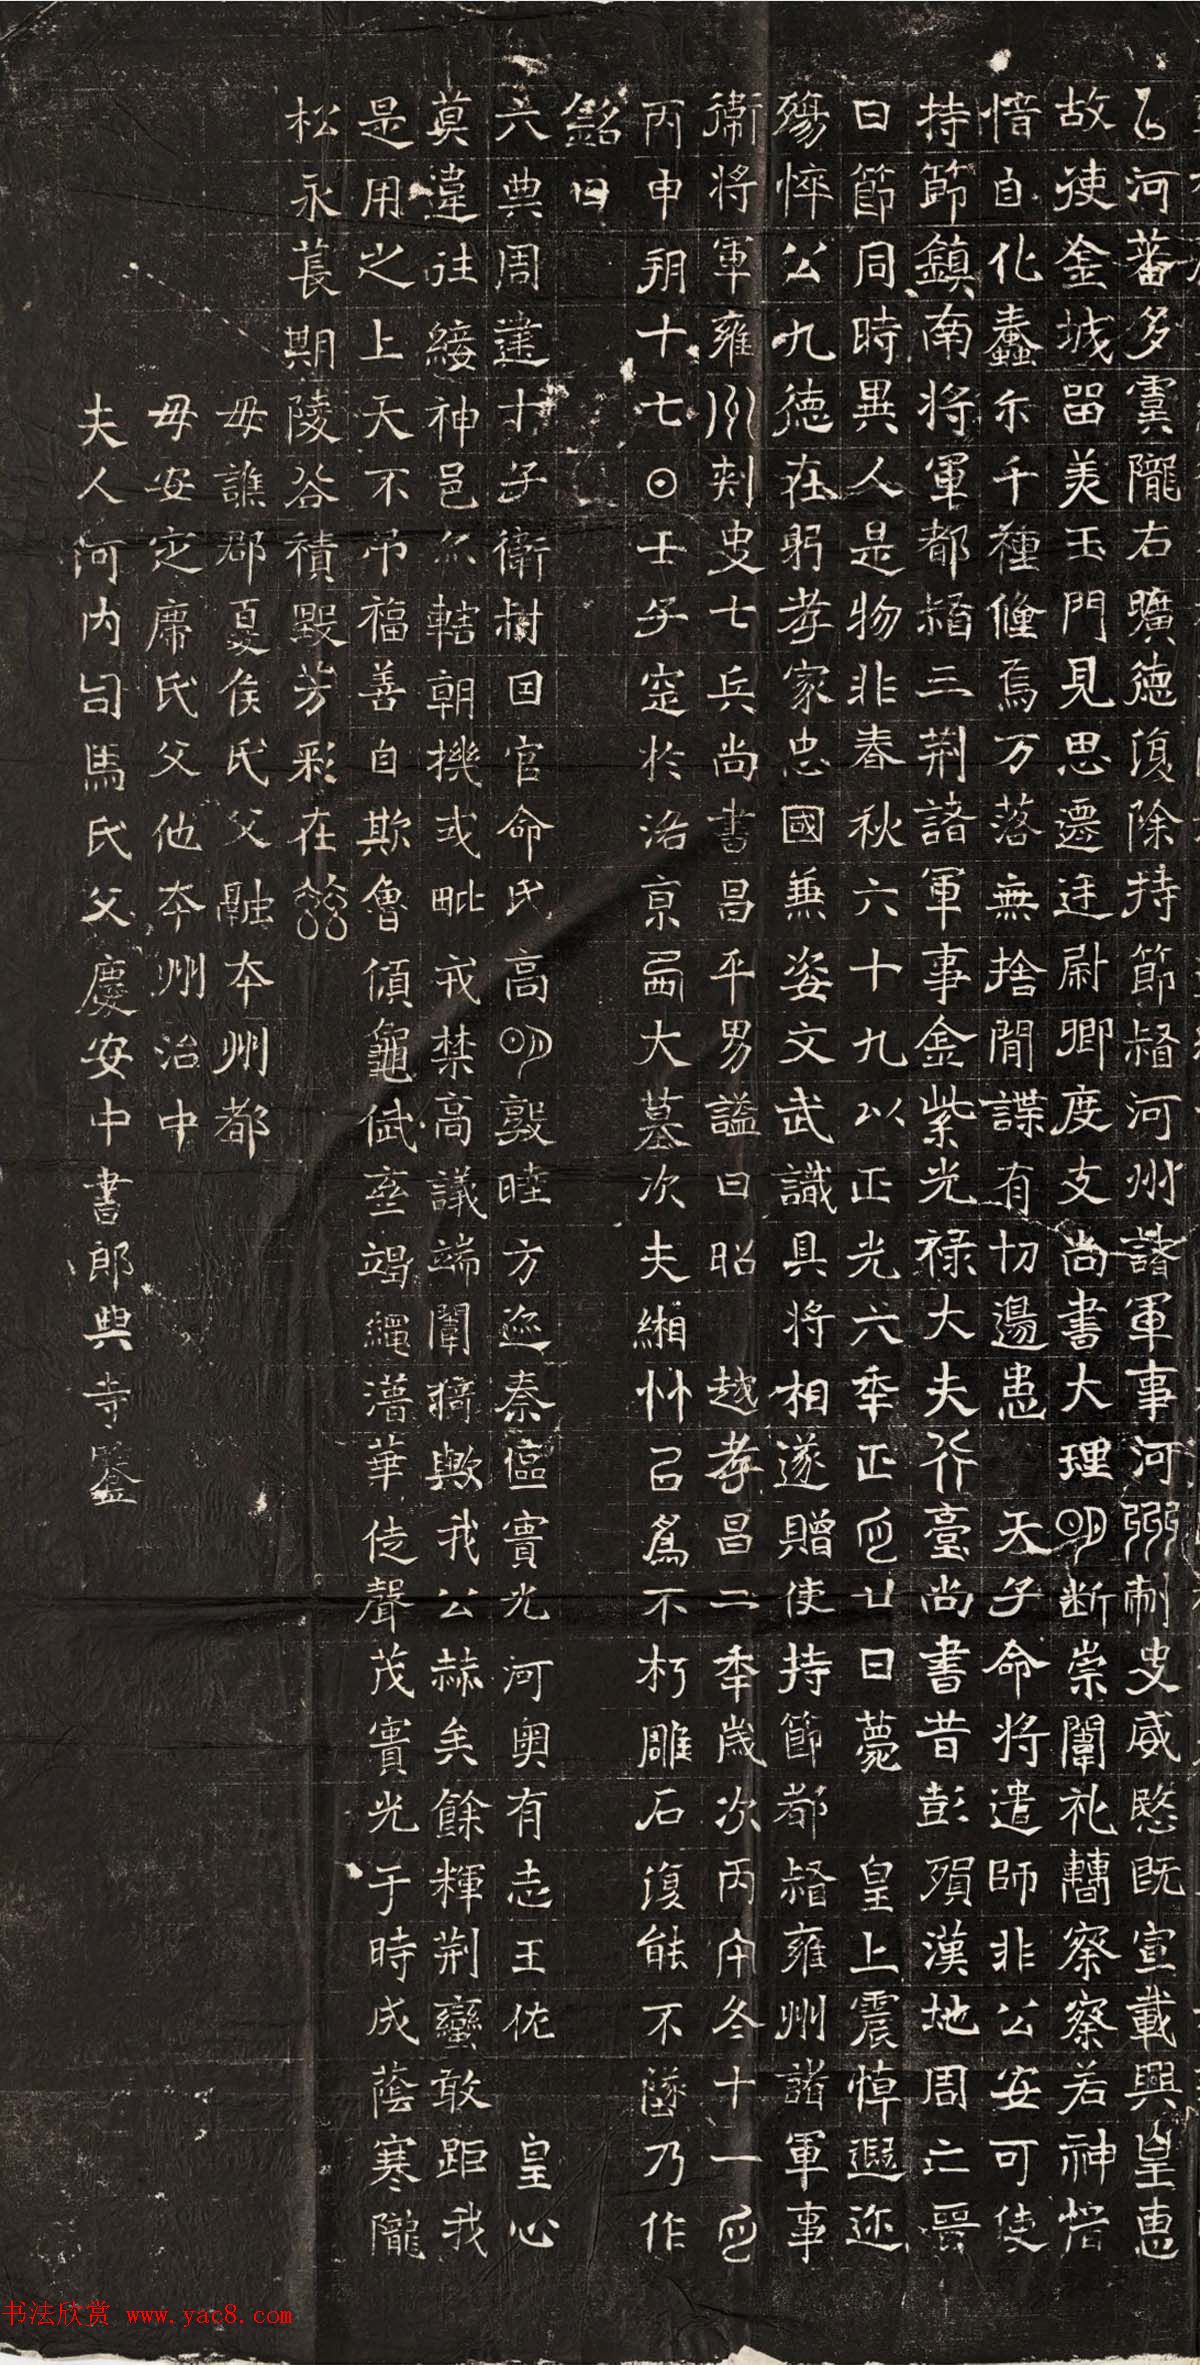 河蕃多虞隴右曠德復除持節督河州諸軍事河州刺史威愍既宣載興皇惠
故使金城留美玉門見思遷廷尉卿度支尚書大理明斷崇闈礼轄察察若神愔
愔自化蠢尒千種倕焉万落無捨閒諜有切邊患 天子命將遣師非公安可使
持節鎮南將軍都督三荊諸軍事金紫光禄大夫行臺尚書昔彭殞漢地周亡晉
日節同時異人是物非春秋六十九以正光六年正月廿日薨 皇上震悼遐迩
殤悴公九德在躬孝家忠國兼姿文武識具將相遂贈使持節都督雍州諸軍事
衛將軍雍州刾史七兵尚書昌平男謚曰昭 越孝昌二年歲次丙午冬十一月
丙申朔十七日壬子窆於洛京西大墓次夫緗竹已為不朽雕石復能不墜乃作
銘曰
六典周建十子衛樹因官命氏高明敦睦方迩秦區寶光河奥有志王佐 皇心
莫違往綏神邑尒轄朝機或毗戎禁高議端闈猗歟我公赫矣餘輝荊蠻敢距我
是用之上天不弔福善自欺魯傾龜㡯座竭繩潛華徒聲茂實光于時成蔭寒隴
松永萇期陵谷積毀芳彩在茲
毋譙郡夏侯氏父融本州都
毋安定席氏父他本州治中
夫人河内司馬氏父慶安中書郎興寺鑒
书法欣赏 www.yac8.com